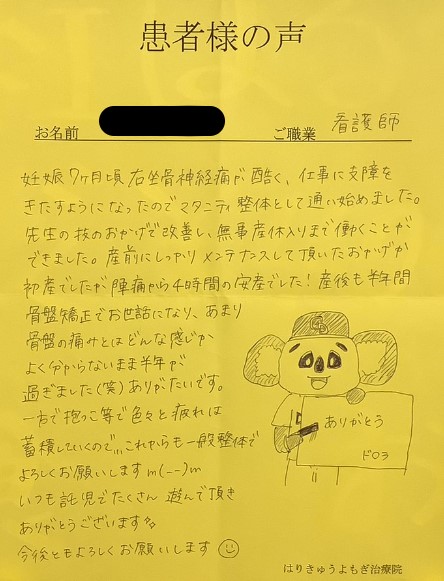 患者様の声
お名前 ご職業 看護師
妊娠7ヶ月頃右坐骨神経痛が酷く、仕事に支障を
きたすようになったのでマタニティ整体として通い始めました。
先生の技のおかげで改善し、無事産休入りまで働くことが
できました。産前にしっかりメンテナンスして頂いたおかげか
初産でしたが陣痛から4時間の安産でした!産後も半年間
骨盤矯正でお世話になり、あまり
骨盤の痛みとはどんな感じか
よく分からないまま半年が
過ぎました(笑)ありがたいです。
一方で抱っこ等で色々と疲れは
蓄積していくので、、、これからも一般整体で
よろしくお願いします m(--)m
いつも託児でたくさん遊んで頂き
ありがとうございます
今後ともよろしくお願いします
CD
D
ありがとう
ドロラ
はりきゅうよもぎ治療院